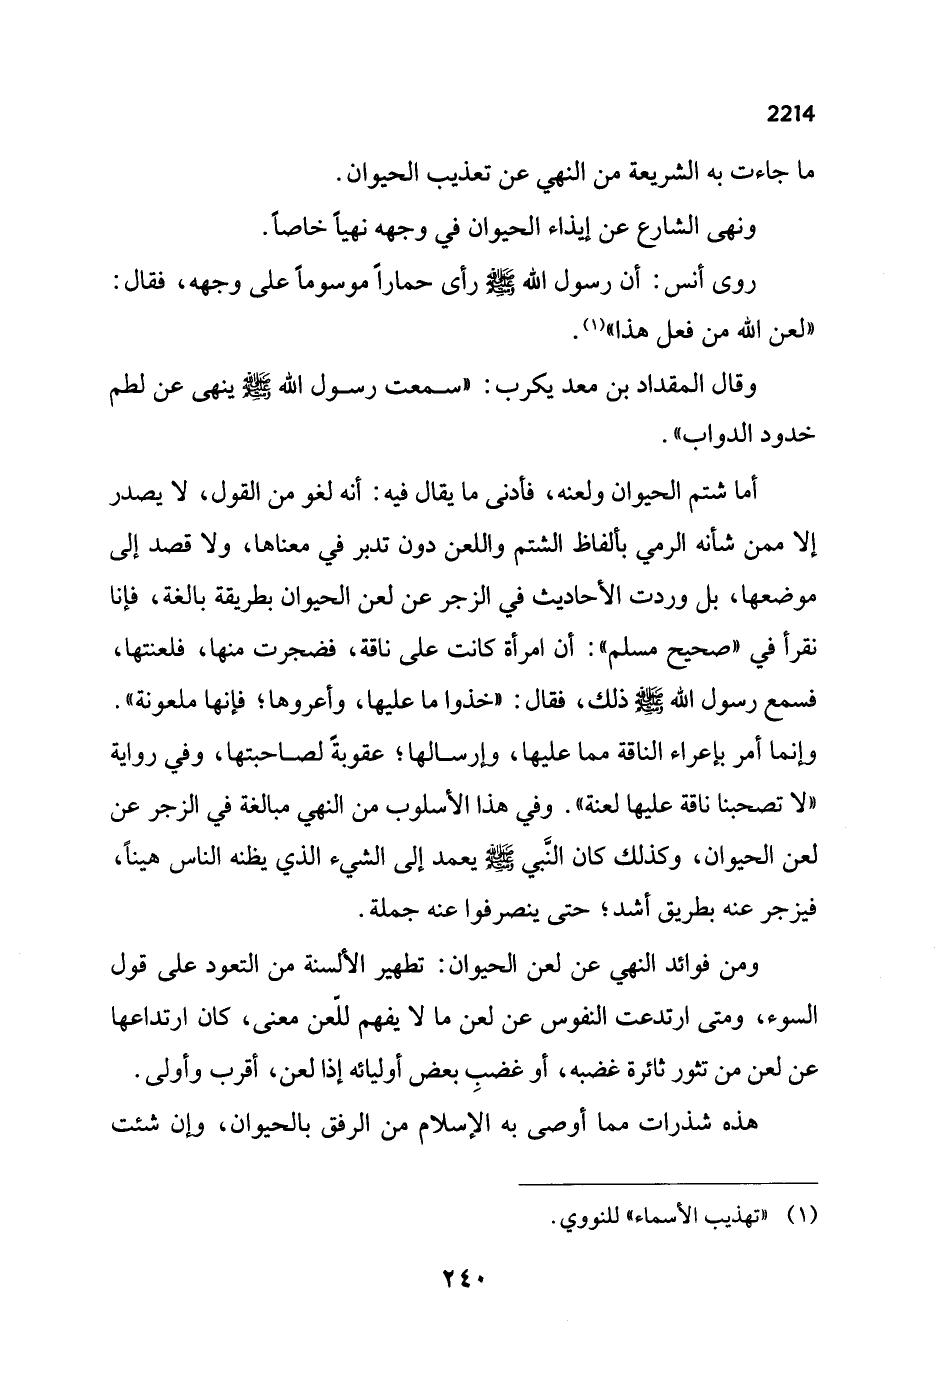 2214
ما جاءت به الشريعة من النهي عن تعذيب الحيوان.
ونهى الشارع عن إيذاء الحيوان في وجهه نهياً خاصاً.
روى أنس: أن رسول الله ﷺ رأى حماراً موسوماً على وجهه، فقال:
«لعن الله من فعل هذا»(١).
وقال المقداد بن معد يكرب: «سمعت رسول الله ﷺ ينهى عن لطم
خدود الدواب».
أما شتم الحيوان ولعنه، فأدنى ما يقال فيه: أنه لغو من القول، لا يصدر
إلا ممن شأنه الرمي بألفاظ الشتم واللعن دون تدبر في معناها، ولا قصد إلى
موضعها، بل وردت الأحاديث في الزجر عن لعن الحيوان بطريقة بالغة، فإنا
نقرأ في «صحيح مسلم»: أن امرأة كانت على ناقة، فضجرت منها، فلعنتها،
فسمع رسول الله ﷺ ذلك، فقال: «خذوا ما عليها، وأعروها؛ فإنها ملعونة».
وإنما أمر بإعراء الناقة مما عليها، وإرسالها؛ عقوبةً لصاحبتها، وفي رواية
«لا تصحبنا ناقة عليها لعنة». وفي هذا الأسلوب من النهي مبالغة في الزجر عن
لعن الحيوان، وكذلك كان النَّبي ﷺ يعمد إلى الشيء الذي يظنه الناس هيناً،
فيزجر عنه بطريق أشد؛ حتى ينصرفوا عنه جملة.
ومن فوائد النهي عن لعن الحيوان: تطهير الألسنة من التعود على قول
السوء، ومتى ارتدعت النفوس عن لعن ما لا يفهم للّعن معنى، كان ارتداعها
عن لعن من تثور ثائرة غضبه، أو غضبِ بعض أوليائه إذا لعن، أقرب وأولى.
هذه شذرات مما أوصى به الإسلام من الرفق بالحيوان، وإن شئت
(١) «تهذيب الأسماء» للنووي.
٢٤٠